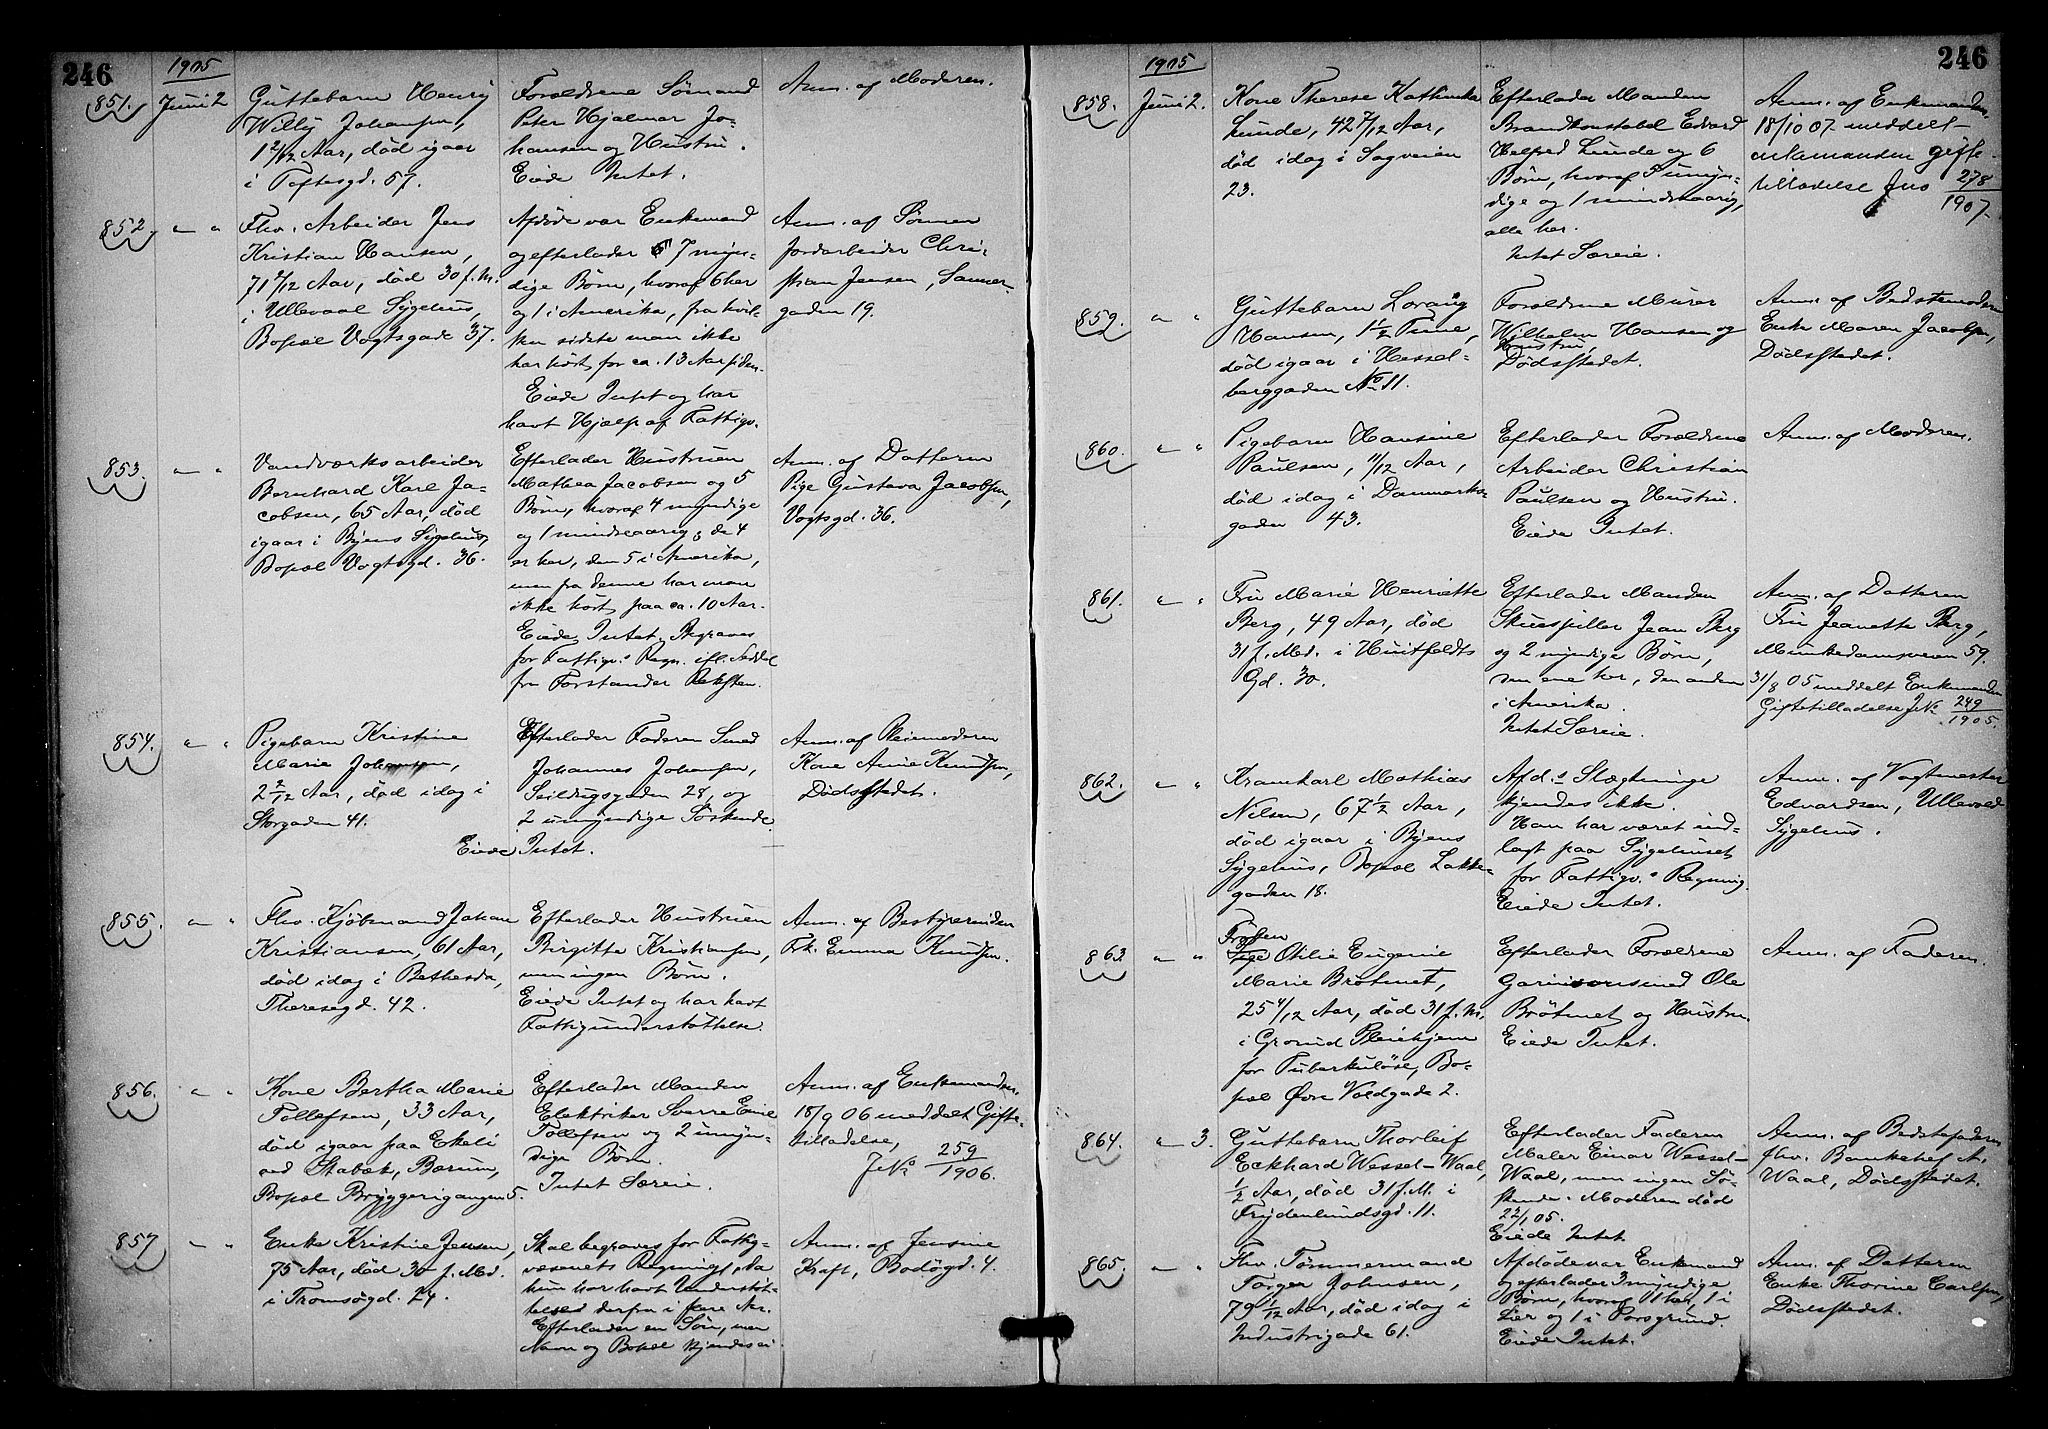 246
1905
851.
Juni 2
Guttebarn Henry
Willy Johansen,
1 2/12 Aar, død igaar
i Toftesgd. 57.
Forældrene Sømand
Peter Hjalmar Jo-
hansen og Hustru.
Eiede Intet.
Anm. af Moderen.
852.
" "
Fhv. Arbeider Jens
Kristian Hansen,
71 /12 Aar, død 30 f. M.
i Ullevaal Sygehus,
Bopæl Vogtsgade 37.
Afdøde var Enkemand
og efterlader 7 myn-
dige Børn, hvoraf 6 her
og 1 i Amerika, fra hvil-
ken sidste man ikke
har hørt for ca. 13 Aar siden.
Eiede Intet og har
havt Hjælp af Fattigv.
Anm. af Sønnen
Jordarbeider Chri-
stian Jensen, Sanner-
gaden 19.
853.
" "
Vandværksarbeider
Bernhard Karl Ja-
cobsen, 65 Aar, død
igaar i Byens Sygehus,
Bopæl Vogtsgd. 36.
Efterlader Hustruen
Mathea Jacobsen og 5
Børn, hvoraf 4 myndige
og 1 mindreaarig, de 4
er her, den 5 i Amerika,
men fra denne har man
ikke hørt paa ca. 10 Aar.
Eiede Intet. Begraves
for Fattigv.s Regn. ifl. Seddel
fra Forstander Reksten.
Anm. af Datteren
Pige Gustava Jacobsen,
Vogtsgd. 36.
854.
" "
Pigebarn Kristine
Marie Johansen,
2 2/12 Aar, død idag i
Storgaden 41.
Efterlader Faderen Smed
Johannes Johansen,
Seildugsgaden 28, og
2 umyndige Søskende.
Eiede Intet.
Anm. af Pleiemoderen
Kone Anne Knudsen,
Dødsstedet.
855.
" "
Fhv. Kjøbmand Johan
Kristiansen, 61 Aar,
død idag i Bethesda,
Theresegd. 42.
Efterlader Hustruen
Birgitte Kristiansen,
men ingen Børn.
Eiede Intet og har havt
Fattigunderstøttelse.
Anm. af Bestyrerinden
Frk. Emma Knudsen.
856.
" "
Kone Bertha Marie
Tollefsen, 33 Aar,
død igaar paa Ekeli
ved Stabæk, Bærum,
Bopæl Bryggerigangen 5.
Efterlader Manden
Elektriker Sverre Emil
Tollefsen og 2 umyn-
dige Børn.
Intet Særeie.
Anm. af Enkemanden.
18/9 06 meddelt Gifte-
tilladelse,
J No 259/1906.
857
" "
Enke Kristine Jensen,
75 Aar, død 30 f. Md.
i Tromsøgd. 24.
Skal begraves for Fattig-
væsenets Regning, da
hun har havt Understøt-
telse derfra i flere Aar.
Efterlader en Søn, men
Navn og Bopæl kjendes ei.
Anm. af Jensine
Kraft, Bodøgd. 4.
246
1905
858.
Juni 2.
Kone Therese Kathinka
Lunde, 42 7/12 Aar,
død idag i Sagveien
23.
Efterlader Manden
Brandkonstabel Edvard
Helfred Lunde og 6
Børn, hvoraf 5 umyn-
dige og 1 mindreaarig,
alle her.
Intet Særeie.
Anm. af Enkemanden.
18/10 07 meddelt
enkemanden gifte-
tilladelse Jno 278/1907.
859.
" "
Guttebarn Lorang
Hansen, 1 1/2 Time,
død igaar i Hessel-
berggaden No 11.
Forældrene Murer
Wilhelm Hansen og
Hustru,
Dødsstedet.
Anm. af Bedstemoderen
Enke Maren Jacobsen,
Dødsstedet.
860.
" "
Pigebarn Hansine
Paulsen, 11/12 Aar,
død idag i Danmarks-
gaden 43.
Efterlader Forældrene
Arbeider Christian
Paulsen og Hustru.
Eiede Intet.
Anm. af Moderen.
861.
" "
Fru Marie Henriette
Berg, 49 Aar, død
31 f. Md. i Huitfeldts
Gd. 30.
Efterlader Manden
Skuespiller Jean Berg
og 2 myndige Børn,
den ene her, den anden
i Amerika.
Intet Særeie.
Anm. af Datteren
Fru Jeanette Berg,
Munkedamsveien 59.
31/8 05 meddelt Enkemanden
Giftetilladelse J No 249/1905.
862.
" "
Kramkarl Mathias
Nilsen, 67 1/2 Aar,
død igaar i Byens
Sygehus, Bopæl Lakke-
gaden 18.
Afd.s Slægtninge
kjendes ikke.
Han har været ind-
lagt paa Sygehuset
for Fattigv.s Regning.
Eiede Intet.
Anm. af Vagtmester
Edvardsen, Ullevold
Sygehus.
863.
" "
Frøken
Pige Otilie Eugenie
Marie Brøtmet,
25 4/12 Aar, død 31 f. M.
i Grorud Pleiehjem
for Tuberkuløse, Bo-
pæl Øvre Voldgade 2.
Efterlader Forældrene
Garnisonssmed Ole
Brøtmet og Hustru.
Eiede Intet.
Anm. af Faderen.
864.
" 3.
Guttebarn Thorleif
Eckhard Wessel-Waal,
1/2 Aar, død 31 f. M. i
Frydenlundsgd. 11.
Efterlader Faderen
Maler Einar Wessel-
Waal, men ingen Sø-
skende. Moderen død
22/1 05.
Eiede Intet.
Anm. af Bedstefaderen
fhv. Bankchef A.
Waal, Dødsstedet.
865.
" "
Fhv. Tømmermand
Torger Johnsen,
79 1/12 Aar, død idag i
Industrigade 61.
Afdøde var Enkemand
og efterlader 3 myndige
Børn, hvoraf 1 her, 1 i
Lier og 1 i Porsgrund.
Eiede Intet.
Anm. af Datteren
Enke Thorine Carlsen,
Dødsstedet.